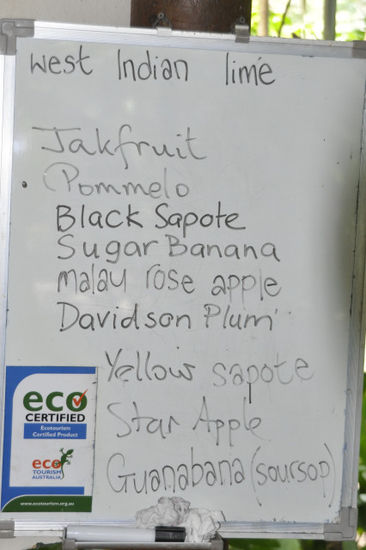 West Indian lime
Jakfruit
Pommelo
Black Sapote
Sugar Banana
malay rose apple
Davidson Plum
Yellow sapote
Star Apple
Guanabana (soursop)
eco
CERTIFIED
Ecotourism
Certified Product
eco
TOURISM
AUSTRALIA
www.ecotourism.org.au